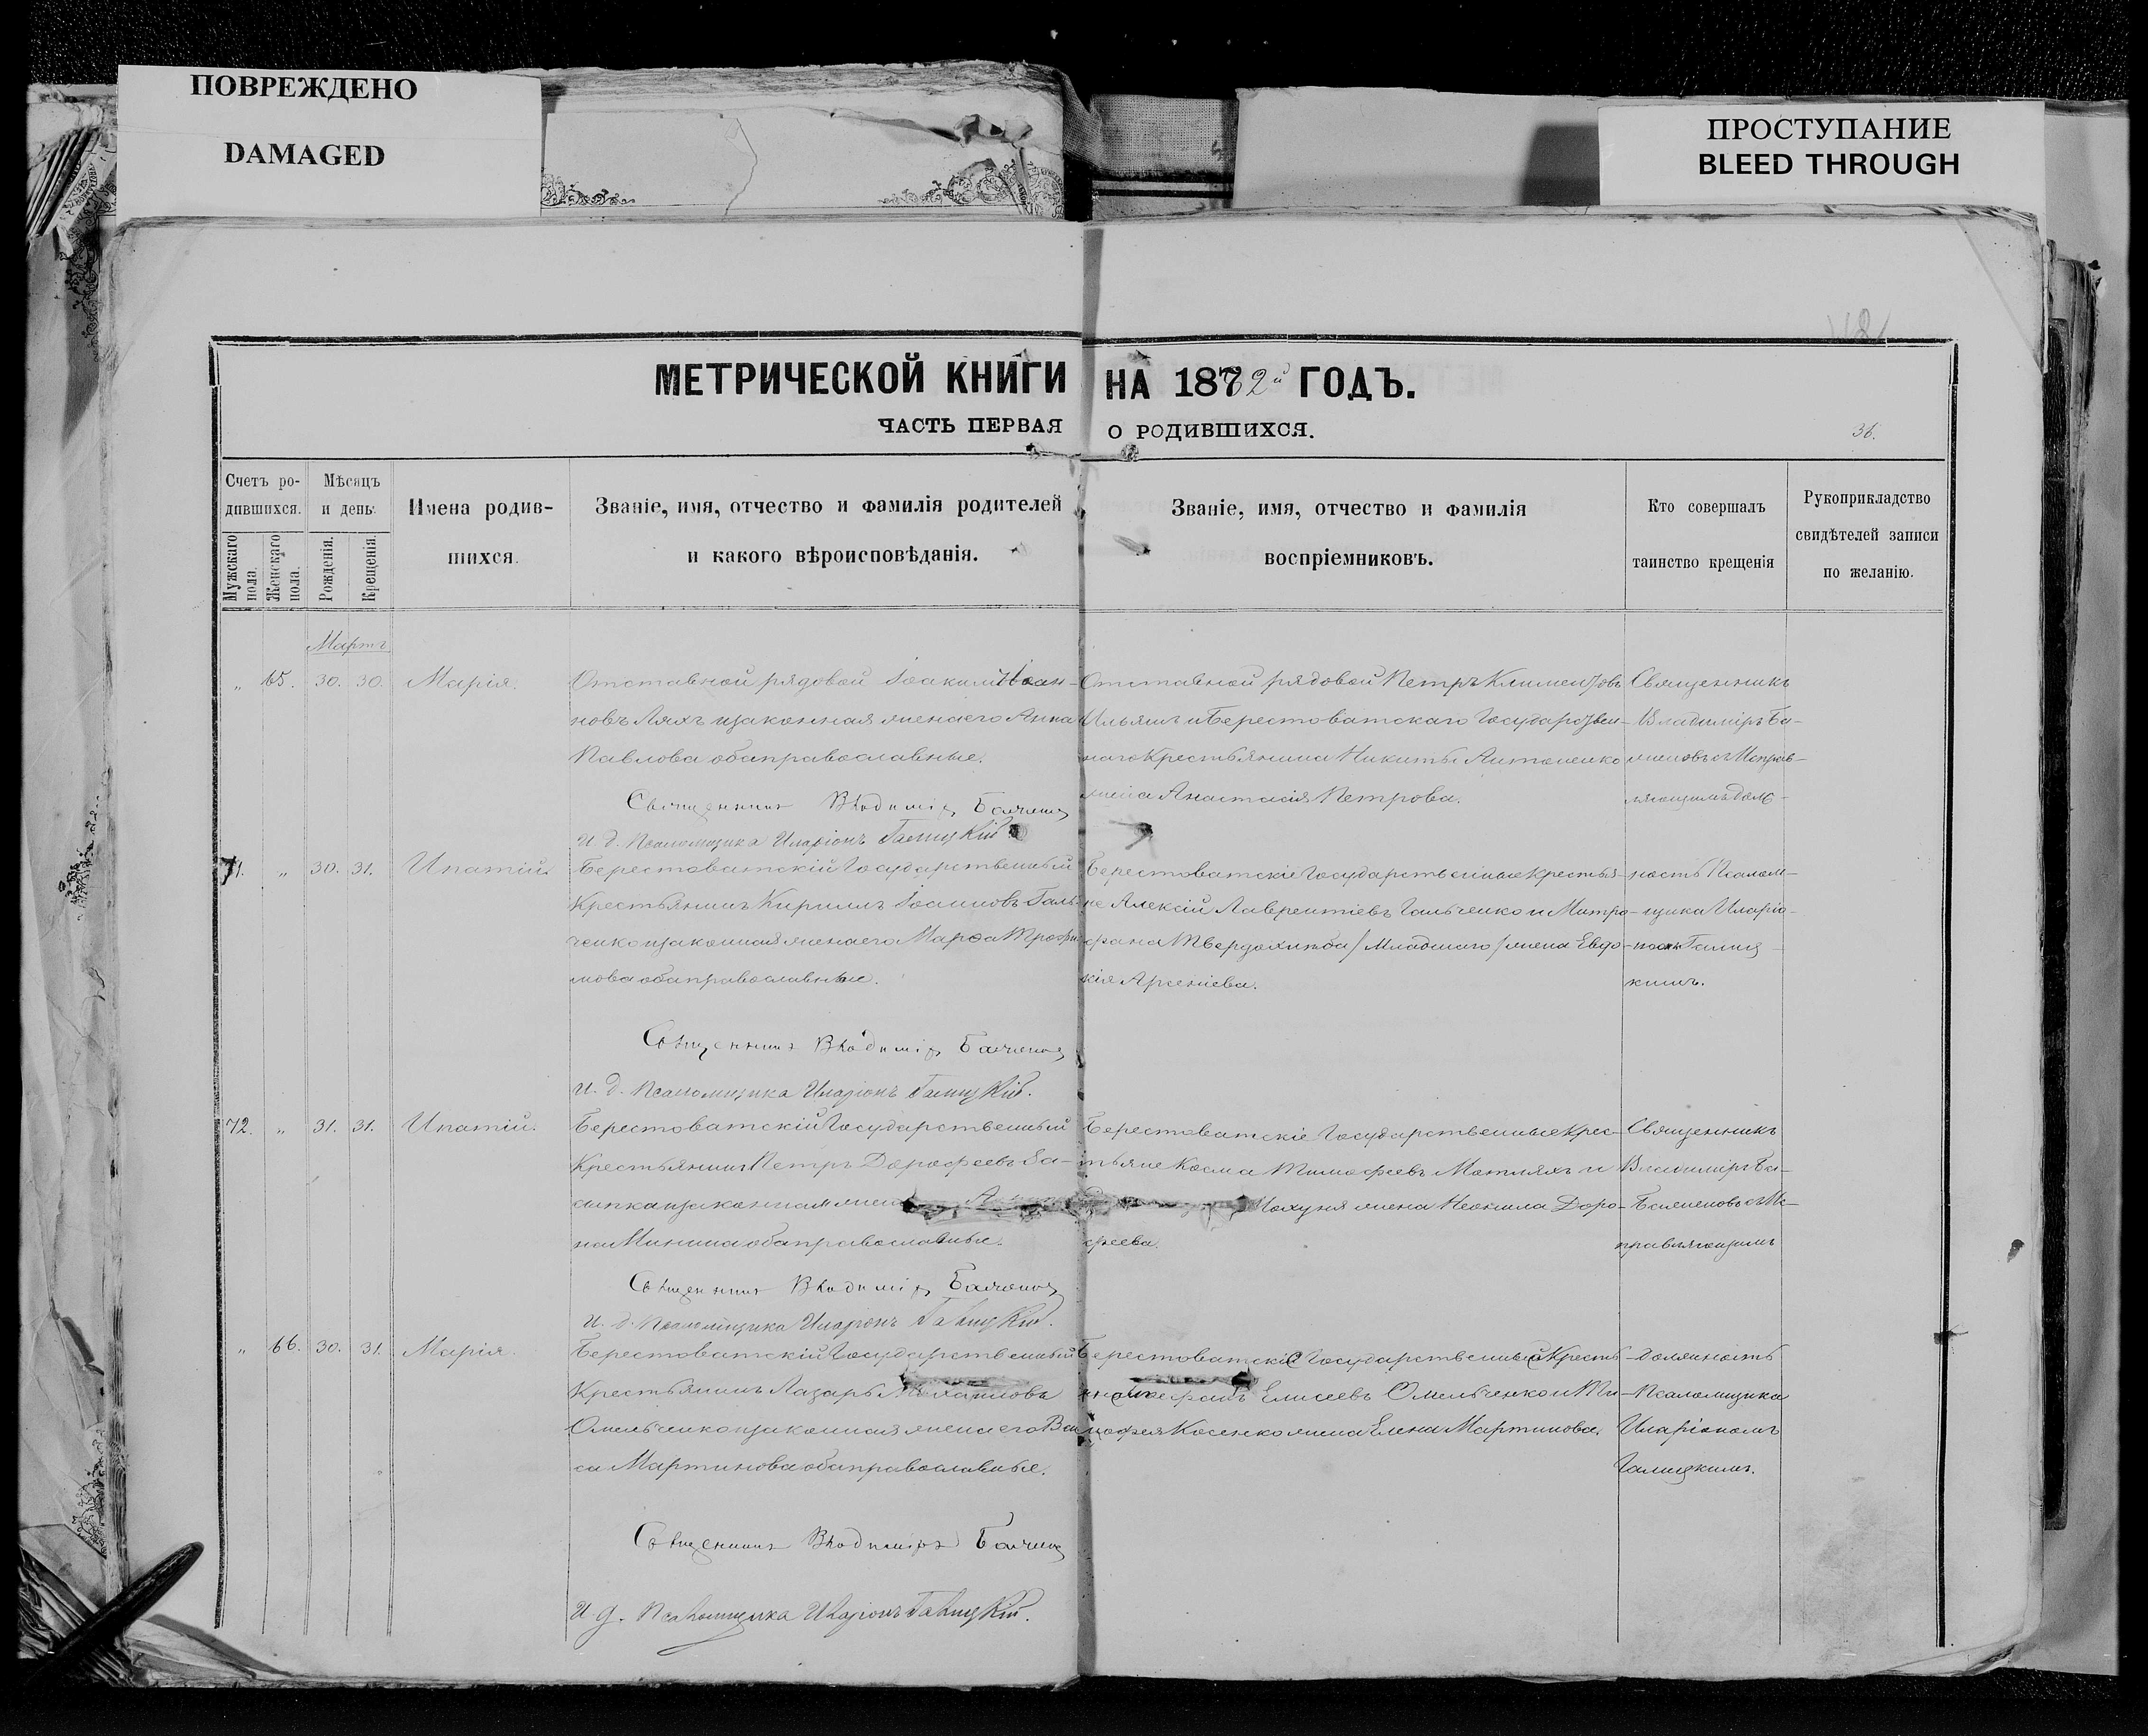 ПОВРЕЖДЕНО
DAMAGED
ПРОСТУПАНИЕ
BLEED THROUGH
МЕТРИЧЕСКОЙ КНИГИ НА 1872й ГОДЪ.
ЧАСТЬ ПЕРВАЯ О РОДИВШИХСЯ.
36.
Счетъ ро-
дившихся.
Мужскаго пола.
Женскаго пола.
Мѣсяцъ
и день.
Рожденія.
Крещенія.
Имена родив-
шихся.
Званіе, имя, отчество и фамилія родителей
и какого вѣроисповѣданія.
Званіе, имя, отчество и фамилія
воспріемниковъ.
Кто совершалъ
таинство крещенія
Рукоприкладство
свидѣтелей записи
по желанію.
Мартъ
„ 65. 30. 30. Марія.
Отставной рядовой Іоакимъ Іоан-
новъ Ляхъ и законная жена его Анна
Павлова оба православные.
Священникъ Владиміръ
и. д. Псаломщика Иларіонъ Галицкій.
Отставной рядовой Петръ Климентовъ
Ильяшъ и Берестоватскаго Государствен-
наго Крестьянина Никиты Антоненко
жена Анастасія Петрова.
Священникъ
Владиміръ Ба-
71. „ 30. 31. Ипатій.
Берестоватскій Государственный
Крестьянинъ Кириллъ Іоанновъ Галь-
ченко и законная жена его Марѳа Трофи-
мова оба православные.
Священникъ Владиміръ
и. д. Псаломщика Иларіонъ Галицкій.
Берестоватскіе Государственные крестья-
не Алексій Лаврентіевъ Гальченко и Митро-
фана Твердохлѣба /Младшаго/ жена Евдо-
кія Арсеніева.
ность Псалом-
щика Иларіо-
номъ Галиц-
кимъ.
72. „ 31. 31. Ипатій.
Берестоватскій Государственный
Крестьянинъ Петръ Дорофеевъ За-
сипка и законная жена
на Минина оба православные.
Священникъ Владиміръ
и. д. Псаломщика Иларіонъ Галицкій.
Берестоватскіе Государственные Крес-
тьяне Косма Тимофеевъ Матляхъ и
жена Неонила Доро-
феева.
Священникъ
Владиміръ Ба-
правляющимъ
„ 66. 30. 31. Марія.
Берестоватскій Государственный
Крестьянинъ Лазарь Михаиловъ
Омельченко и законная жена его Васи-
са Мартинова оба православные.
Священникъ Владиміръ
и. д. Псаломщика Иларіонъ Галицкій.
Берестоватскіе Государственные Кресть-
Елисеевъ Омельченко и Ти-
мофея Косенко жена Елена Мартинова.
Должность
Псаломщика
Иларіономъ
Галицкимъ.